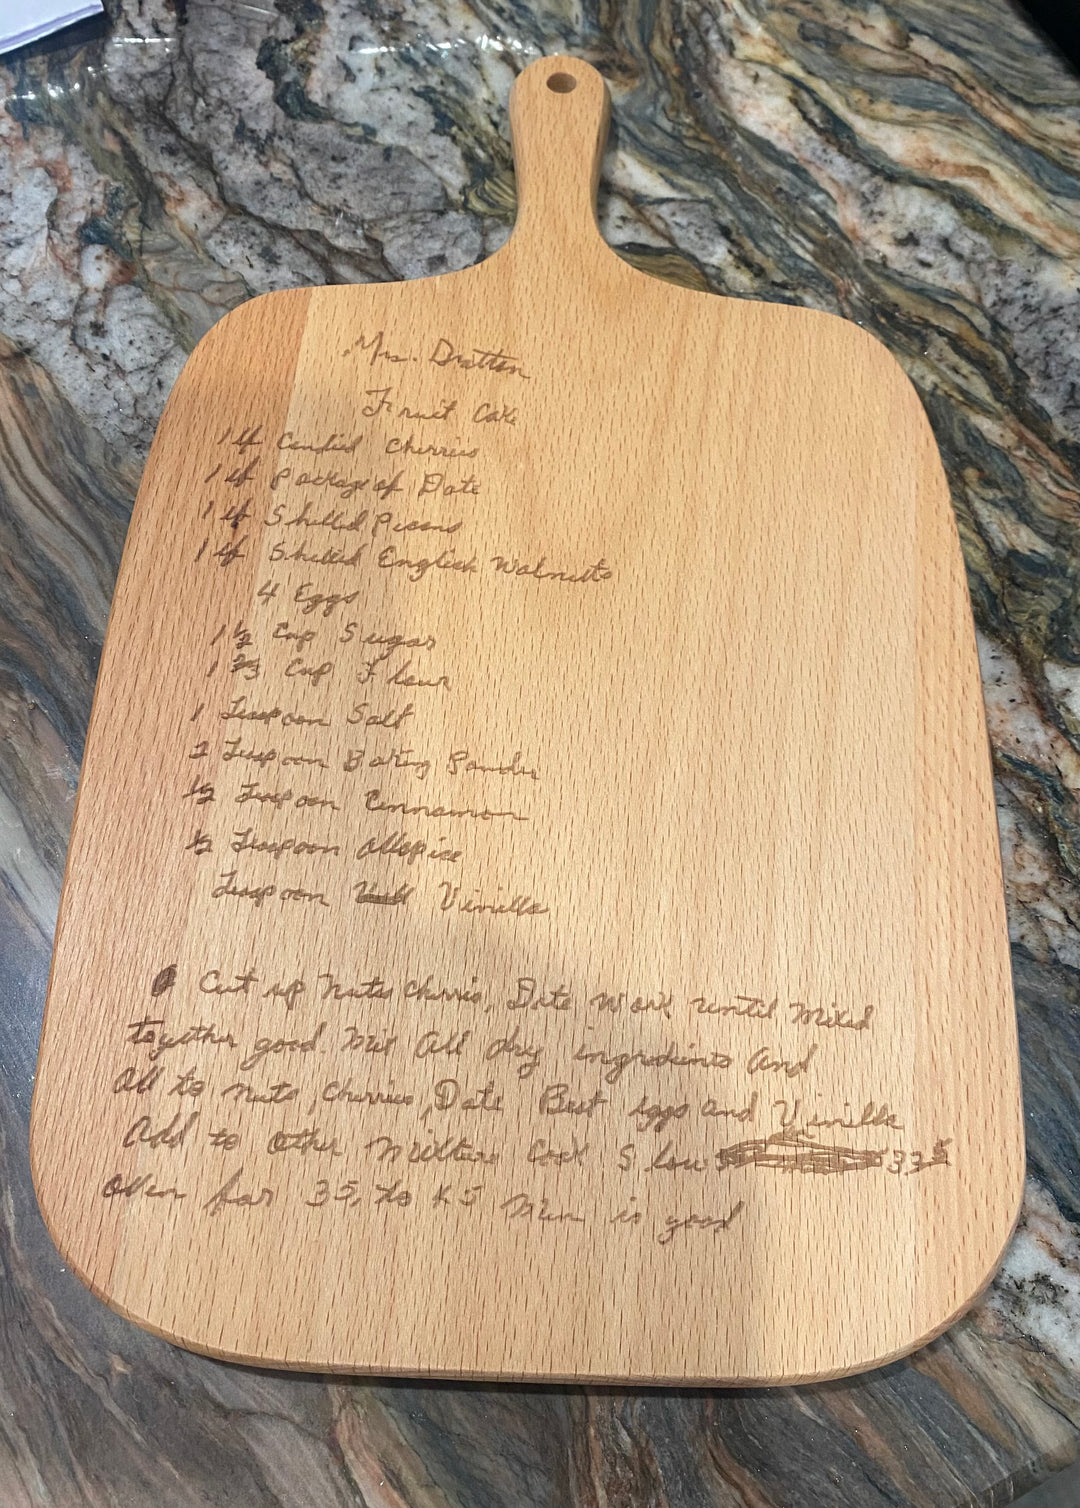 Mrs. Dratten
Fruit Cake
1 lb Candied Cherries
1 lb Package of Date
1 lb Shelled Pecans
1 lb Shelled English Walnutts
4 Eggs
1 1/2 Cup Sugar
1 2/3 Cup Flour
1 Teaspoon Salt
2 Teaspoon Baking Powder
1/2 Teaspoon Cinnamon
1/2 Teaspoon Allspice
Teaspoon Vinilla
Cut up Nuts Cherries, Date work until mixed
together good. Mix All dry ingredients and
all to nuts, Cherries, Date Beat eggs and Vinilla
Add to other mixture Cook Slow
oven for 35, to 45 Min is good